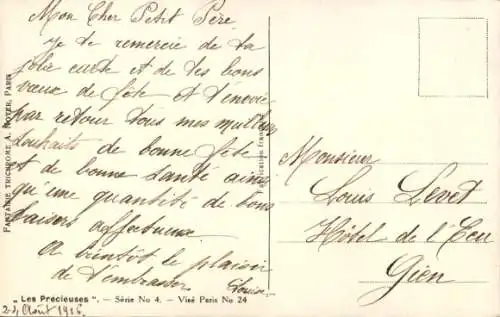 Mon Cher Petit Père
je te remercie de ta
jolie carte et de tes bons
vœux de fête et t'envoie
par retour tous mes meilleurs
souhaits de bonne fête
et de bonne santé ainsi
qu'une quantité de bons
baisers affectueux
A bientôt le plaisir
de t'embrasser
Louise
„Les Précieuses". — Série No 4. — Visé Paris No 24
24 Août 1916.
FANTAISIE TRICHROME A. NOYER, PARIS
Fabrication française
Monsieur
Louis Levet
Hôtel de l'Ecu
Gien